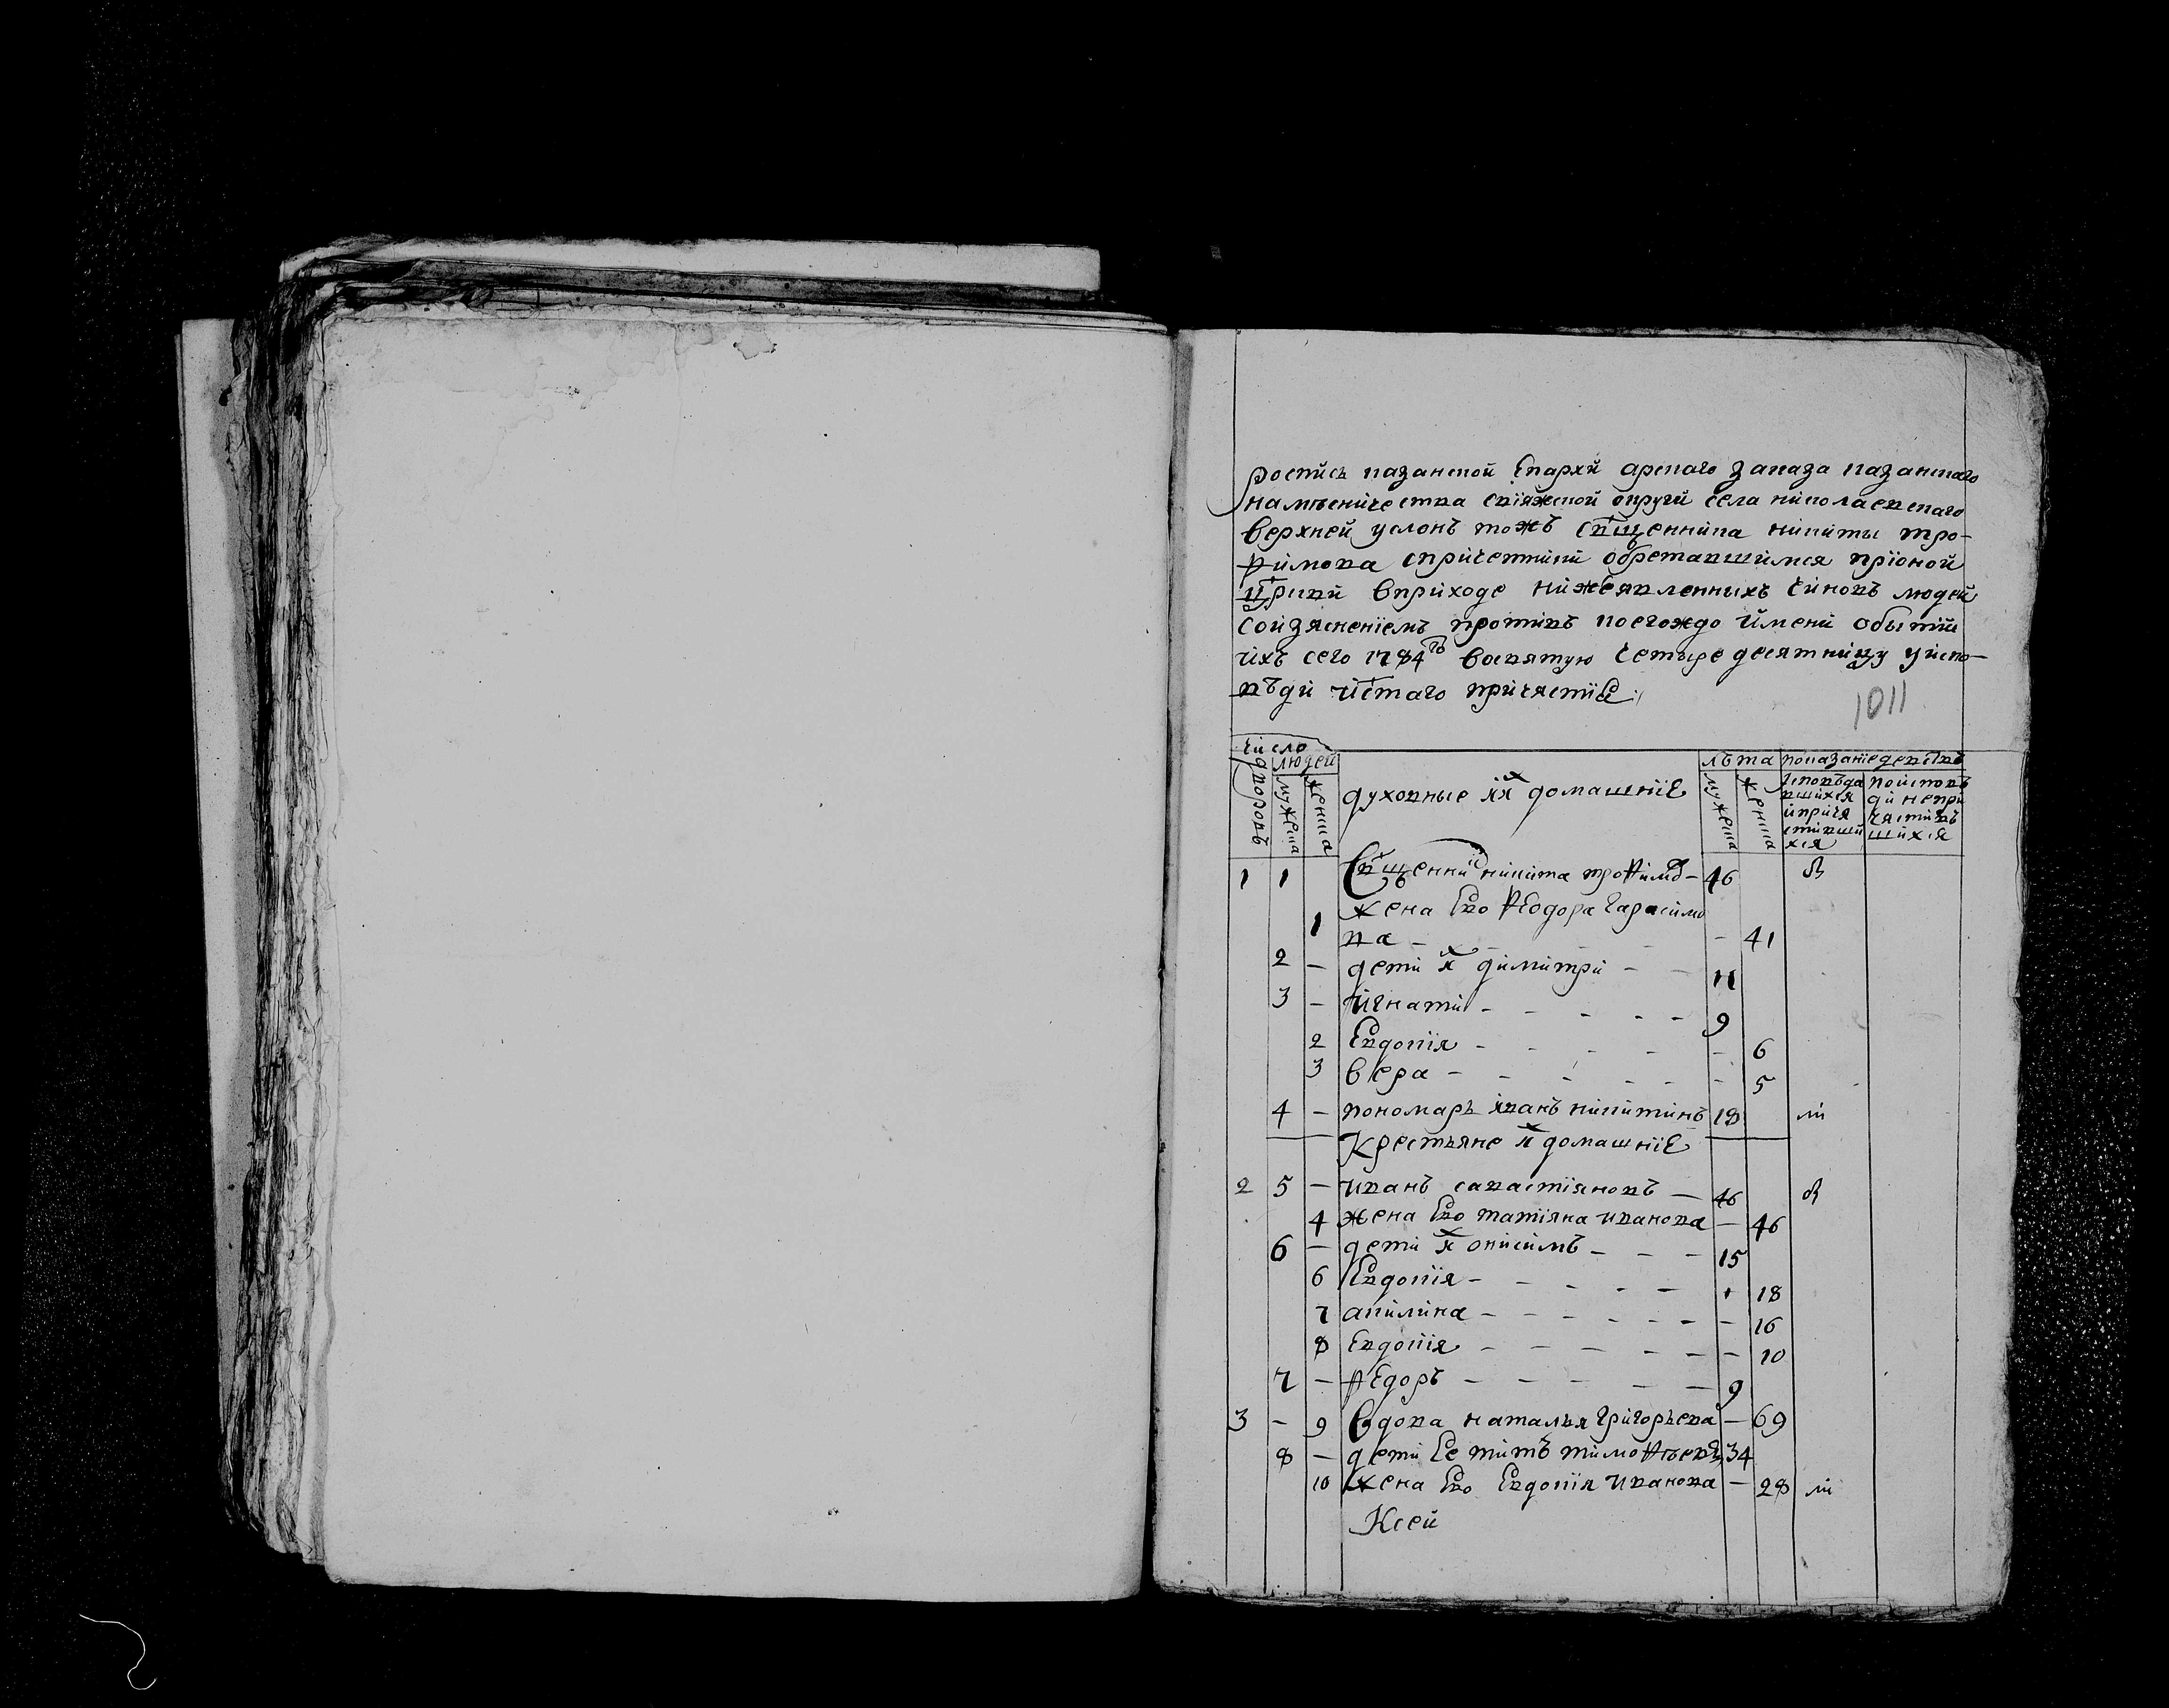 роспись казанской Епархи арскаго заказа казанскаго
намѣсничества свіяжской округи села николаевскаго
верхней услонъ тожъ сщенника никиты тро-
фимова спричетники обретавшимся пріоной
цркви вприходе нижеявленныхъ чиновъ людей
соизяснениемъ противъ коегождо имени обытіи
ихъ сего 1784го восвятую четыредесятницу уиспо-
вѣди истаго причястиЕ
1011
число
дворовъ
людей
мужеска
женска
духовные их домашніЕ
лѣта
мужеска
женска
показаніе действъ
Исповѣда
вшихся
иприча
стивши
хся
поисповѣ
ди непри
частивъ
шихся
1 1 Сщенник никита трофимов 46 в
жена Ево фЕодора гарасимо
1 ва 41
2 дети их димитри 11
3 игнати 9
2 Евдокия 6
3 вера 5
4 пономарь иванъ никитинъ 18 ли
Крестьяне их домашніЕ
2 5 иванъ савастіяновъ 46 в
4 жена Ево татіяна иванова 46
6 дети их онисимъ 15
6 Евдокія 18
7 акилина 16
8 Евдокія 10
7 фЕдоръ 9
3 9 вдова наталья григорьева 69
8 дети Ее титъ тимофѣевъ 34
10 жена Ево Евдокія иванова 28 ли
Ксей